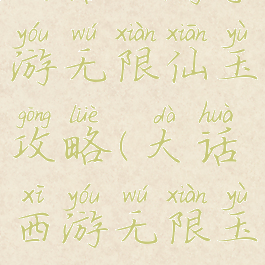 yóu wú xiàn xiān yù
游无限仙玉
gōng lüè dà huà
攻略(大话
xī yóu wú xiàn yù
西游无限玉